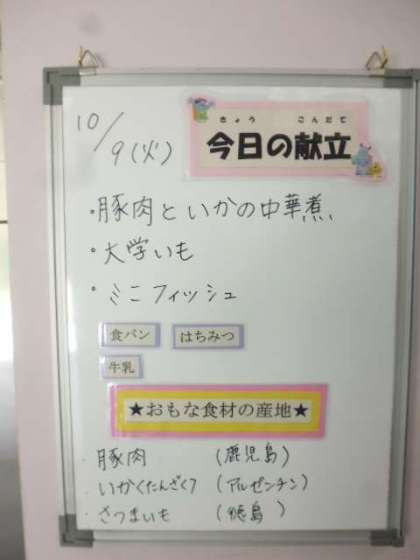 10/9(火)
きょう こんだて
今日の献立
・豚肉といかの中華煮
・大学いも
・ミニフィッシュ
食パン はちみつ
牛乳
★おもな食材の産地★
・豚肉 (鹿児島)
・いかくたんざく (アルゼンチン)
・さつまいも (徳島)